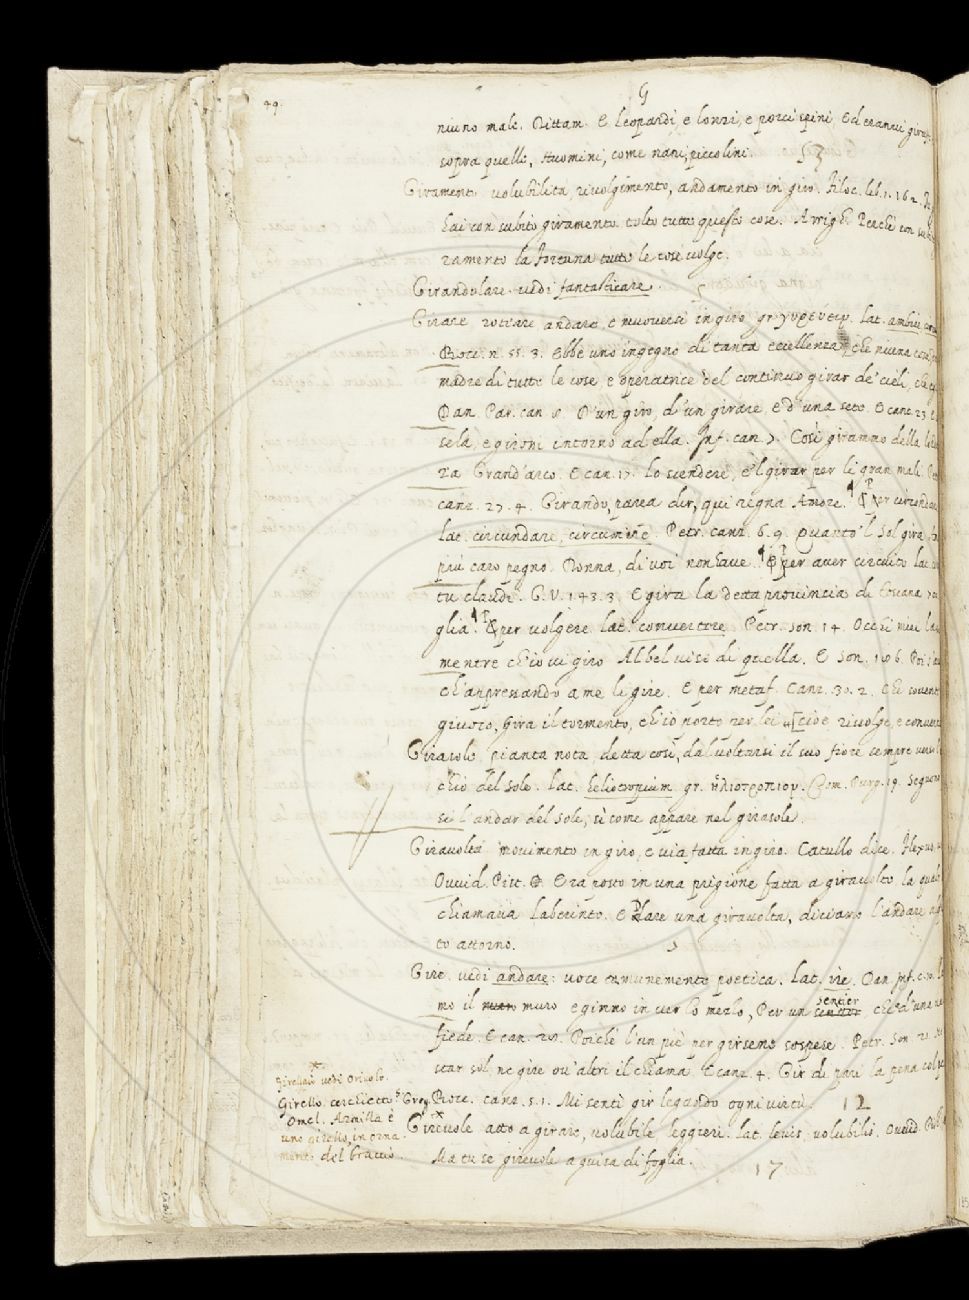 49.
G
niuno male. Dittam. E leopardi, e lonzi, e porci spini Ed eranui
sopra quelle, Huomini, come nani, piccolini.
Giramento volubilità, rivolgimento, andamento in giro. Filoc. lib. 1. 162.
hai con subito giramento tolto tutte queste cose. Arrigh. Perche con
ramento la fortuna tutte le cose volge.
Girandolare vedi fantasticare.
Girare rotare andare, e muoversi in giro gr. γυρεύειν. lat. ambire
Bocc. n. 55. 3. Ebbe uno ingegno di tanta eccellenza, che niuna cosa
madre di tutte le cose, e operatrice del continuo girar de' cieli,
Dan. Par. can. 8. D'un giro, di un girare, e d'una sete. E canz. 23.
sela, e gironi intorno ad ella. Inf. can. 7. Così girammo della
za Grand'arco. E can. 17. lo scendere, e'l girar per li gran mali.
canz. 27. 4. Girando, parea dir, qui regna Amore. ¶ Per circondare
lat. circundare, circumire. Petr. canz. 6. 9. quanto 'l Sol gira,
più caro pegno Donna, di voi non have. ¶ per aver circuito lat.
tu claudi. G. V. 1. 43. 3. E gira la detta provincia di Toscana
glia. ¶ per volgere lat. convertere. Petr. son. 14. Occhi miei
mentre ch'io vi giro Al bel viso di quella. E son. 106.
ch'appressando a me li gire. E per metaf. Canz. 30. 2. Chi
giuoco, Gira il tormento, ch'io porto per lei [cioè rivolge, e
Girasole pianta nota, detta così, dal voltarsi il suo fiore sempre verso
chio del sole. lat. heliotropium gr. ἡλιοτροπιον. Com. Purg. 19.
se l'andar del sole, sì come appare nel girasole.
Giravolta movimento in giro, e via fatta in giro. Catullo dice.
Ovvid. Pist. Era posto in una prigione fatta a giravolte, la quale
chiamava laberinto. E Dare una giravolta, diciamo l'andare
to attorno.
Gire. vedi andare: voce comunemente poetica. lat. ire. Dan Inf. c. 10.
mo il muro e gimmo in ver lo mezzo, Per un sentier che d'una
fiede. E can. 28. Poichè l'un piè per girsene sospese. Petr. Son. 21.
star sol, ne gire ov'altri il chiama. E canz. 4. Gir di pari la pena col
Bocc. canz. 5. 1. Mi sentì gir legando ogni virtù. 12
* Girellaio vedi Orivolo.
Girello. cerchietto S. Greg.
Omel. Armilla è
uno girello, in orna
mento del braccio.
Girevole atto a girare, volubile, leggieri. lat. levis, volubilis. Ovvid. Pist.
Ma tu se' girevole a guisa di foglia. 17